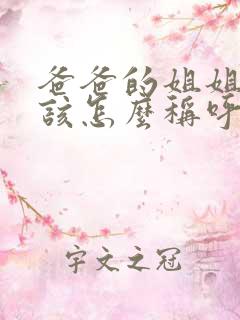 爸爸的姐姐
該怎麼稱呼
宇文之冠